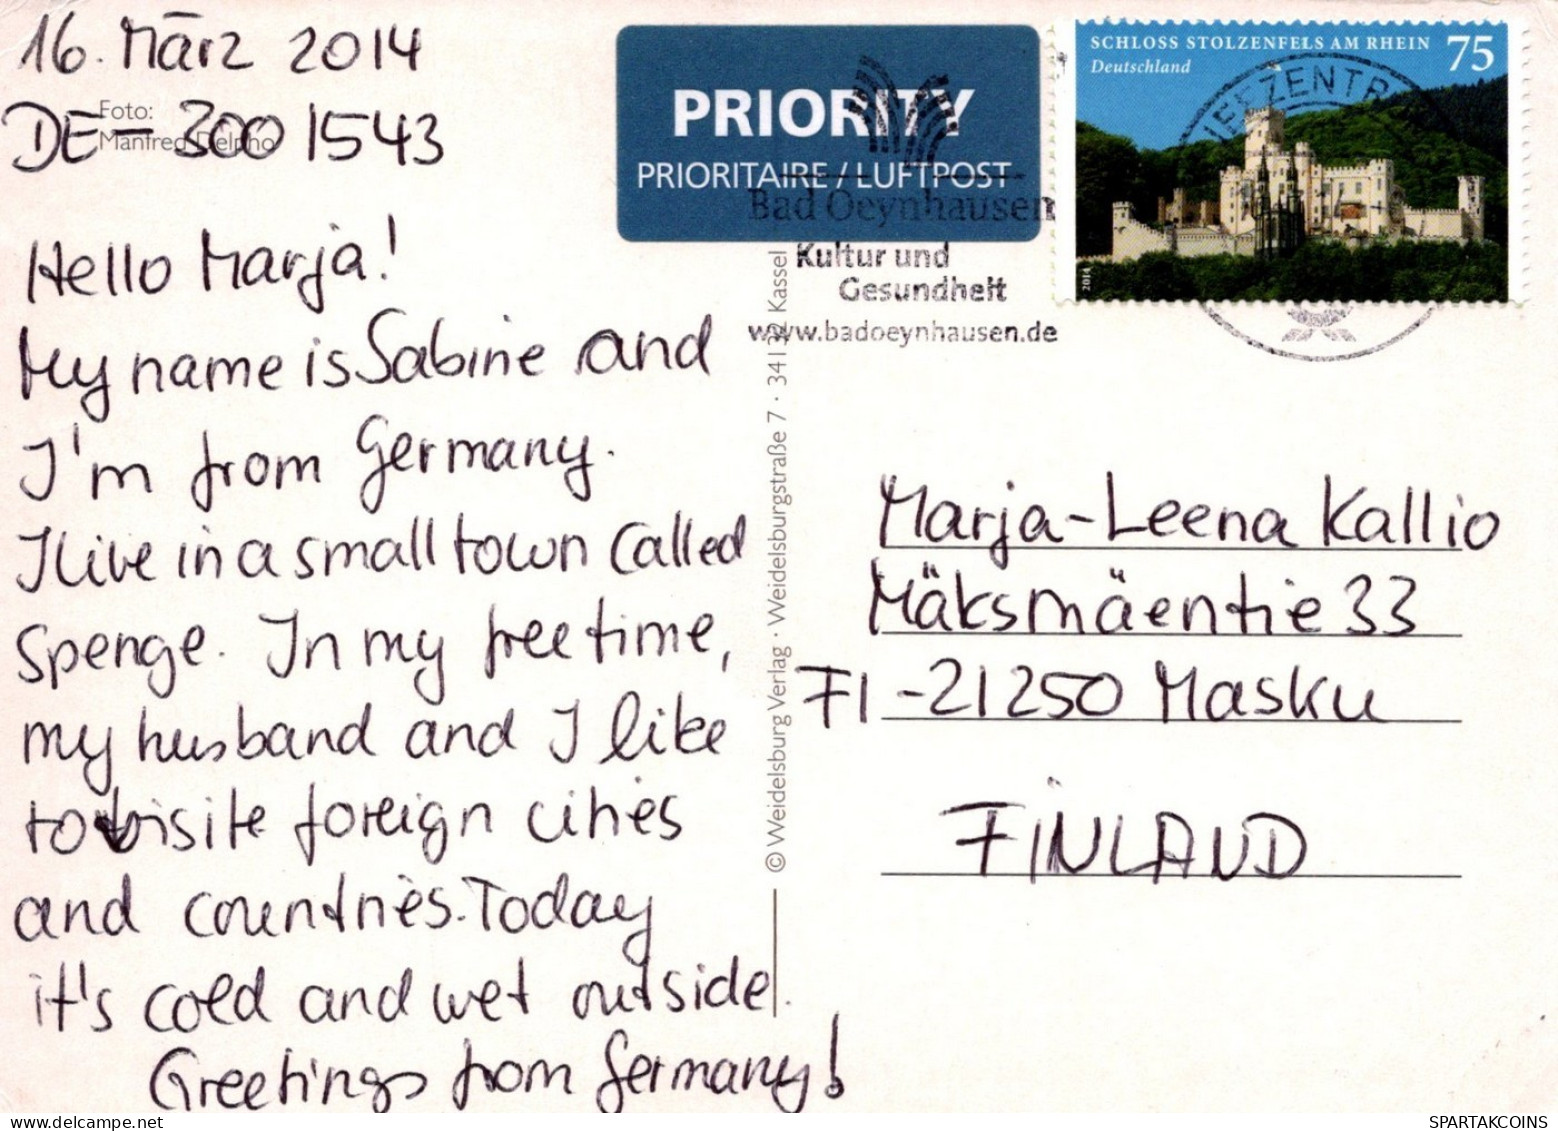 16. März 2014
DE-300 1543
Foto:
Manfred Delpho
Hello Marja!
My name is Sabine and
I'm from Germany.
I live in a small town called
Spenge. In my free time,
my husband and I like
to visite foreign cities
and countries. Today
it's cold and wet outside.
Greetings from Germany!
© Weidelsburg Verlag · Weidelsburgstraße 7 · 34132 Kassel
PRIORITY
PRIORITAIRE / LUFTPOST
Bad Oeynhausen
Kultur und
Gesundheit
www.badoeynhausen.de
SCHLOSS STOLZENFELS AM RHEIN 75
Deutschland
2014
Marja-Leena Kallio
Mäksmäentie 33
FI-21250 Masku
FINLAND
SPARTAKCOINS